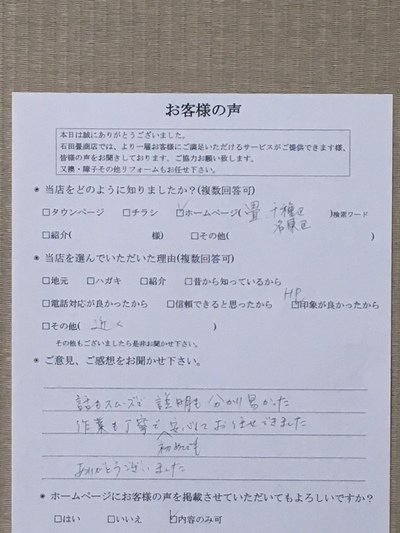 お客様の声
本日は誠にありがとうございました。
石田畳商店では、より一層お客様にご満足いただけるサービスがご提供できます様、
皆様の声をお聞きしております、ご協力お願い致します。
又襖・障子その他リフォームもお任せ下さい。
* 当店をどのように知りましたか?(複数回答可)
□タウンページ □チラシ ☑ホームページ(畳 千種区 名東区)検索ワード
□紹介( 様) □その他( )
* 当店を選んでいただいた理由(複数回答可)
□地元 □ハガキ □紹介 □昔から知っているから
□電話対応が良かったから □信頼できると思ったから HP ☑印象が良かったから
□その他( 近く )
その他もございましたら是非お聞かせ下さい。
* ご意見、ご感想をお聞かせ下さい。
話もスムーズで 説明も 分かり易かった
作業も丁寧で 安心して お任せできました
初めてでも
ありがとうございました
* ホームページにお客様の声を掲載させていただいてもよろしいですか?
□はい □いいえ ☑内容のみ可